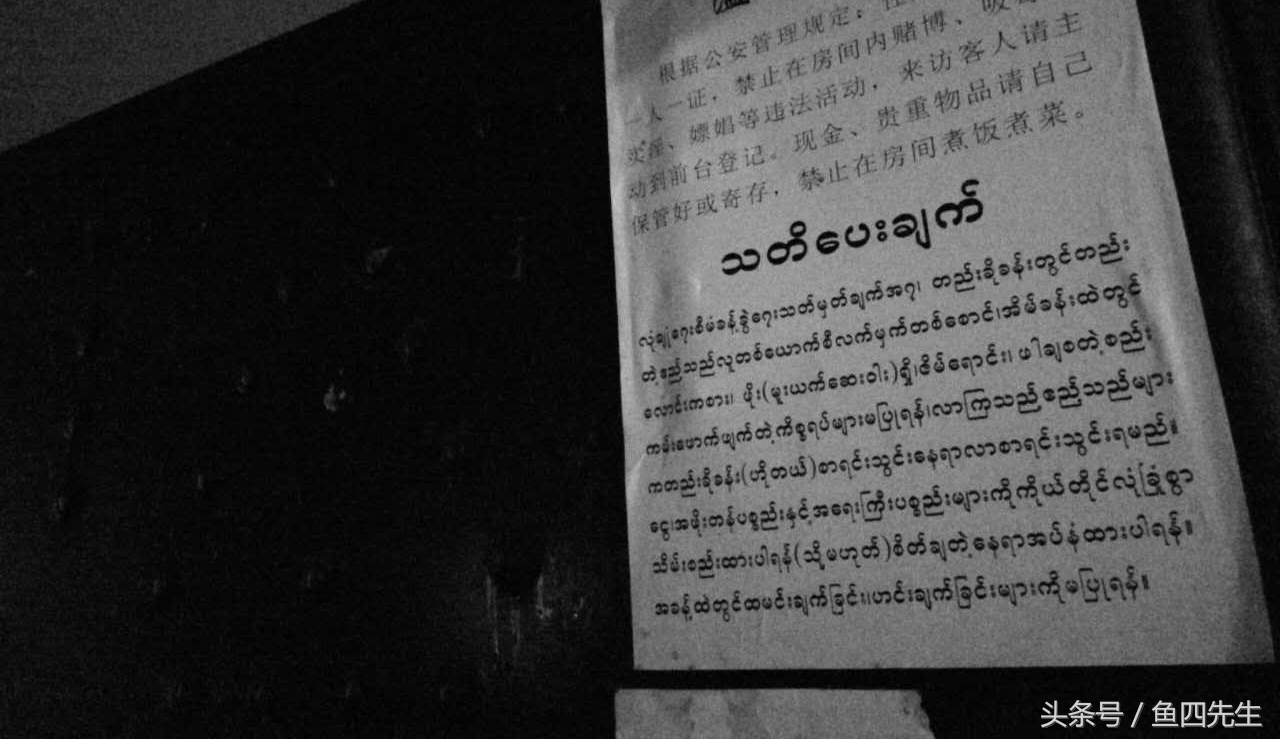 根据公安管理规定：住
一人一证，禁止在房间内赌博、吸毒
卖淫、嫖娼等违法活动，来访客人请主
动到前台登记。现金、贵重物品请自己
保管好或寄存，禁止在房间煮饭煮菜。
သတိပေးချက်
လုံချုံရေးစီမံခန့်ခွဲရေးသတ်မှတ်ချက်အ၇၊ တည်းခိုခန်းတွင်တည်း
တဲ့ဧည့်သည်လူတစ်ယောက်စီလက်မှက်တစ်စောင်၊အိမ်ခန်းထဲတွင်
လောင်းကစား၊ ဖိုး(မူးယက်ဆေးဝါး)ရှို၊ဇိမ်ရောင်း၊ ဖါချစတဲ့စည်း
ကမ်းဖောက်ဖျက်တဲ့ကိစ္စရပ်များမပြုရန်၊လာကြသည်ဧည့်သည်များ
ကတည်းခိုခန်း(ဟိုတယ်)စာရင်းသွင်းနေရာလာစာရင်းသွင်းရမည်။
ငွေ၊အဖိုးတန်ပစ္စည်းနှင့်အရေးကြီးပစ္စည်းများကိုကိုယ်တိုင်လုံခြုံစွာ
သိမ်းစည်းထားပါရန်(သို့မဟုတ်)စိတ်ချတဲ့နေရာအပ်နံထားပါရန်။
အခန့်ထဲတွင်ထမင်းချက်ခြင်း၊ဟင်းချက်ခြင်းများကိုမပြုရန်။
头条号 / 鱼四先生